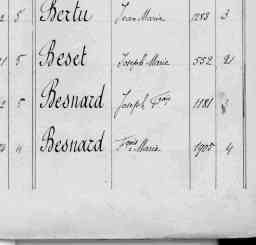 5 Bertu Jean Marie 1283 3
5 Beset Joseph Marie 552 21
5 Besnard Joseph Frois 1181 3
4 Besnard Frois Marie 1905 4